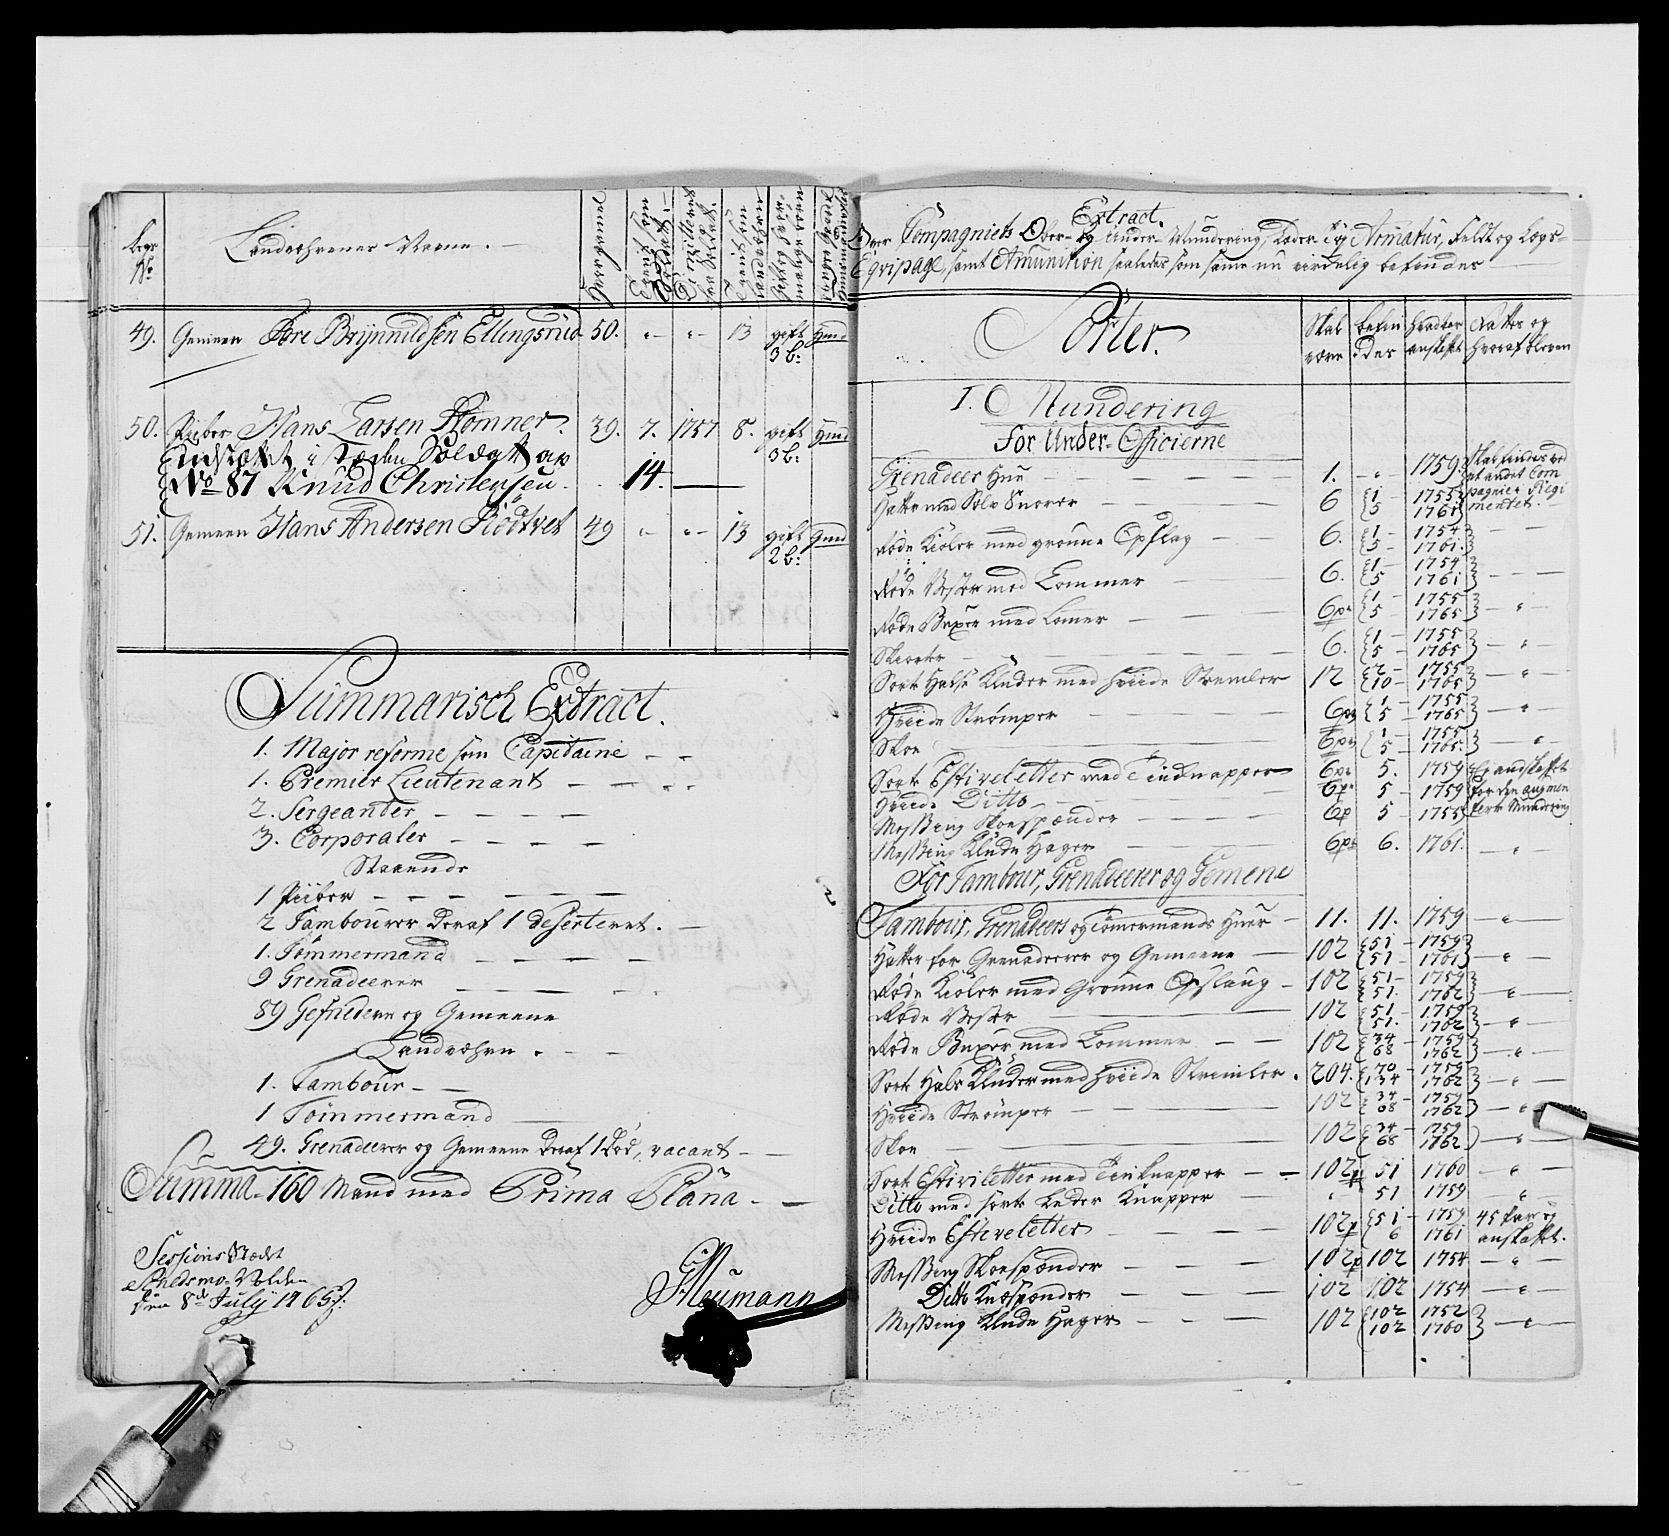 Landværnets Navne.
49. Gemeen Tore Brynnildsen Ellingsrud 50. " " 13 gift 3 b:
50. Piiber Hans Larsen Stomner. 39. 7. 1757 8. gift 3 b:
Indsættet i steden Soldat af
No 87 Knud Christensen. 14.
51. Gemeen Hans Andersen Flødtvet 49 " " 13 gift 2 b:
Summarisch Extract.
1. Major reforme som Capitaine
1. Premier Lieutenant
2. Sergeanter
3. Corporaler
Staaende
1 Piiber
2 Tambourer deraf 1 deserteret.
1. Tømmermand
9 Grenadeerer
89 Gefriedere og Gemeene
Landværn.
1. Tambour
1 Tömmermand
49. Grenadeerer og Gemeene deraf 1 død, vacant
Summa 160 Mand med Prima Plana
Sessions Stædet
Schedsmo-Volden
den 8de July 1765.
Neumann
Extract.
Over Compagniets Over- og Under-Mundering, Læder Tøy Armatur, Feldt og Legs-
Eqvipage, samt Amunition saaledes som samme nu virkelig befindes
Sorter.
Skal være
befindes
hvad tor anskaft
I. Mundering
For Under-Officierne
Grenadeer Hue 1. " 1759. Skal findes ved et andet Compagnie i Regimentet.
Hatte med Sølv Snorer 6 {1 5 1755 1761}
Røde Kioler med grønne Opslag 6. {1 5 1754 1761.}
Røde Vester med Lommer 6. {1 5 1754 1761}
Røde Buxer med Lomer 6pr {1 5 1755 1765} "
Skiorter 6. {1 5 1755 1765} "
Sort Halse Kluder med hviide Stremler 12 {2 10 1755 1765} "
Hviide Strømper 6pr {1 5 1755 1765} "
Skoe 6pr {1 5 1755 1765} "
Sort Estiveletter med Tinknapper 6pr 5. 1759
Hviide Ditto 6pr 5 1759
Messing Skoespænder 6p 5 1755
Messing Klude Hager 6pr 6. 1761. "
For Tambour, Grenadeerer og Gemene
Tambour, Grenadeers og Tömermands Huer 11. 11. 1759 "
Hatte for Grenadeerer og Gemeene 102 {51 51 1759 1761} "
Røde Kioler med Grønne Opslaug 102 {51 51. 1759 1762} "
Røde Vester 102 {51 51. 1759 1762} "
Røde Buxer med Lommer 102 {34 68 1759 1762} "
Sort Hals Kluder med hviide Stremler. 204. {70 134 1759 1762} "
Hviide Strømper 102 {34 68 1759 1762} "
Skoe 102 {34 68 1759 1762} "
Sort Estiveletter med Tin Knapper 102p 51 1760 "
Ditto med sort Leder Knapper " 51 1759 "
Hviide Estiveletter 102p {51 6 1759 1761 45 par ey anskaffet.
Messing Skoespænder 102p 102 1754 "
Ditto Knæspænder 102 102 1754 "
Messing Klude Hager 102 {102 102 1752 1760} "